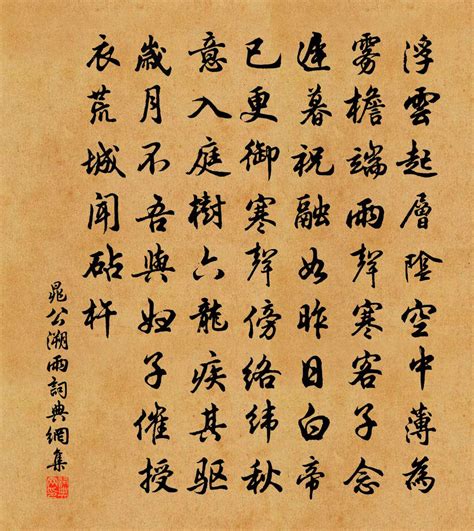 浮雲起層陰空中薄為
霧檐端雨聲寒客子念
遲暮祝融如昨日白帝
已更御寒聲傍絡緯秋
意入庭樹六龍疾其驱
歲月不吾與婦子催授
衣荒城聞砧杵
晁公溯雨詞典網集